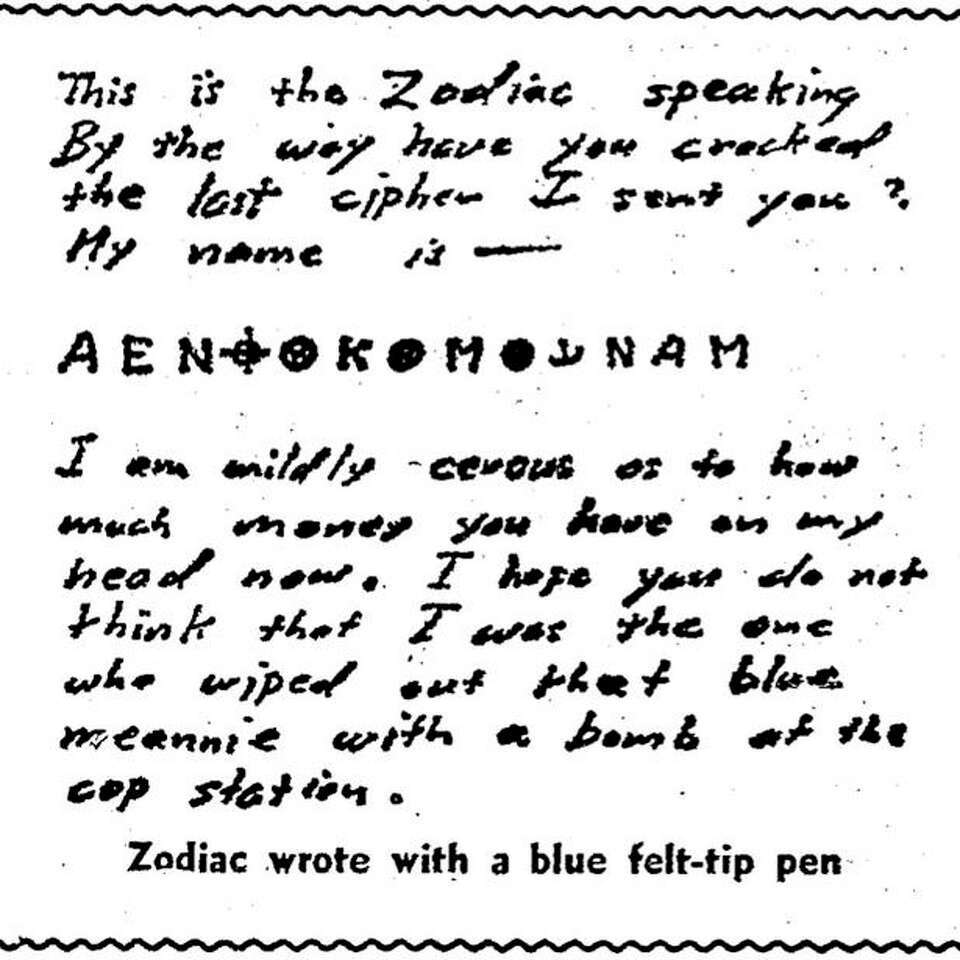 This is the Zodiac speaking
By the way have you cracked
the last cipher I sent you ?.
My name is —
A E N ⌖ ⊗ K ⊗ M ⊗ ⚓ N A M
I am mildly cerous as to how
much money you have on my
head now. I hope you do not
think that I was the one
who wiped out that blue
meannie with a bomb at the
cop station.
Zodiac wrote with a blue felt-tip pen